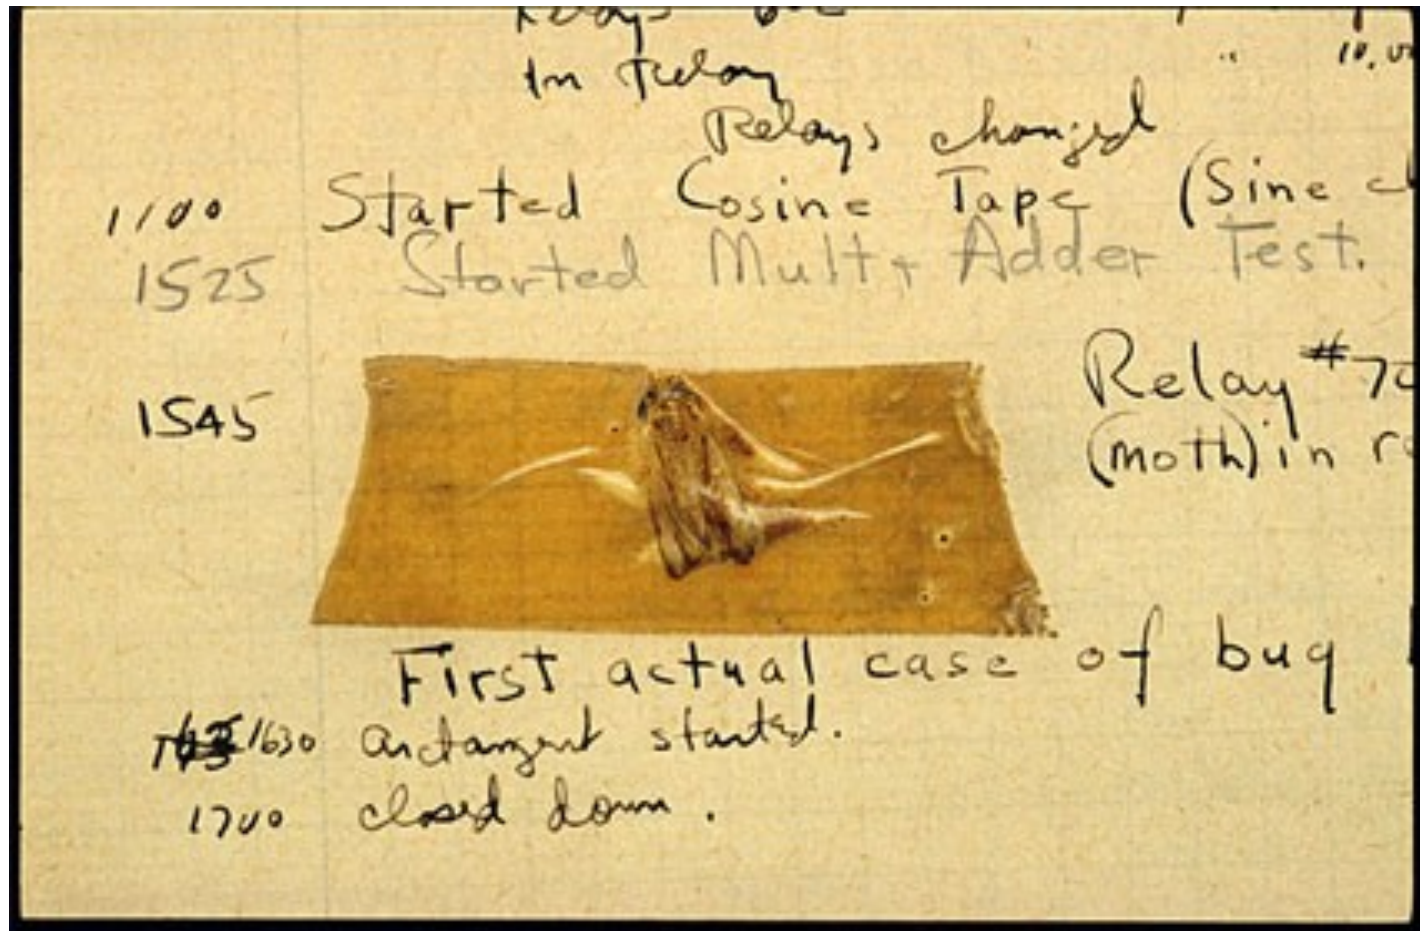 Relays
in Relay
Relays changed
1100 Started Cosine Tape (Sine
1525 Started Mult + Adder Test.
1545 Relay #70
(moth) in
First actual case of bug
1630 arctangent started.
1700 closed down.